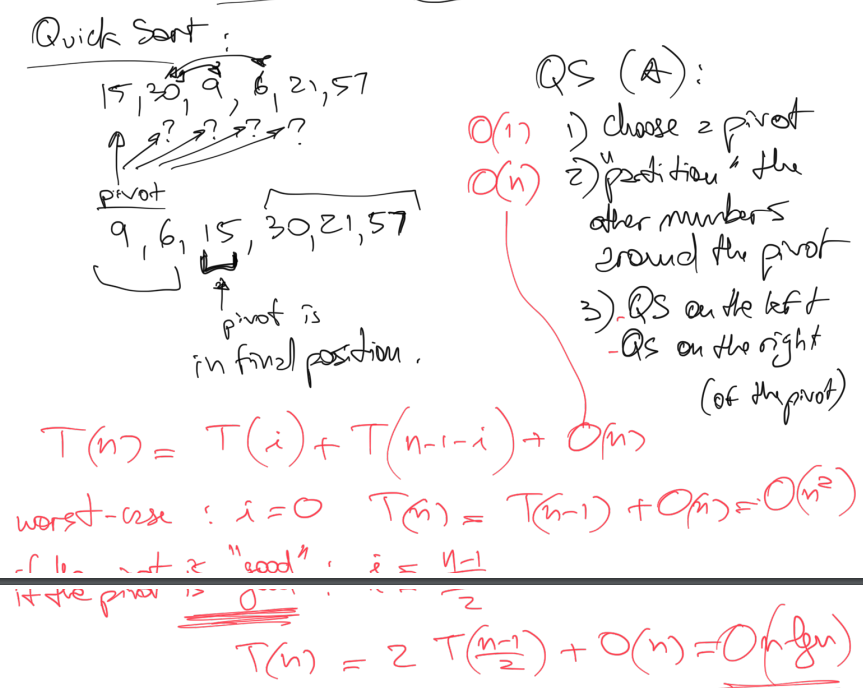 Quick Sort :
15, 30, 9, 6, 21, 57
? ? ? ?
pivot
9, 6, 15, 30, 21, 57
pivot is
in final position.
QS (A):
O(1) 1) choose a pivot
O(n) 2) "partition" the
other numbers
around the pivot
3) - QS on the left
- QS on the right
(of the pivot)
T(n) = T(i) + T(n-1-i) + O(n)
worst-case : i=0 T(n) = T(n-1) + O(n) = O(n²)
if the pivot is "good" : i = n-1
2
T(n) = 2 T(n-1/2) + O(n) = O(n lgn)